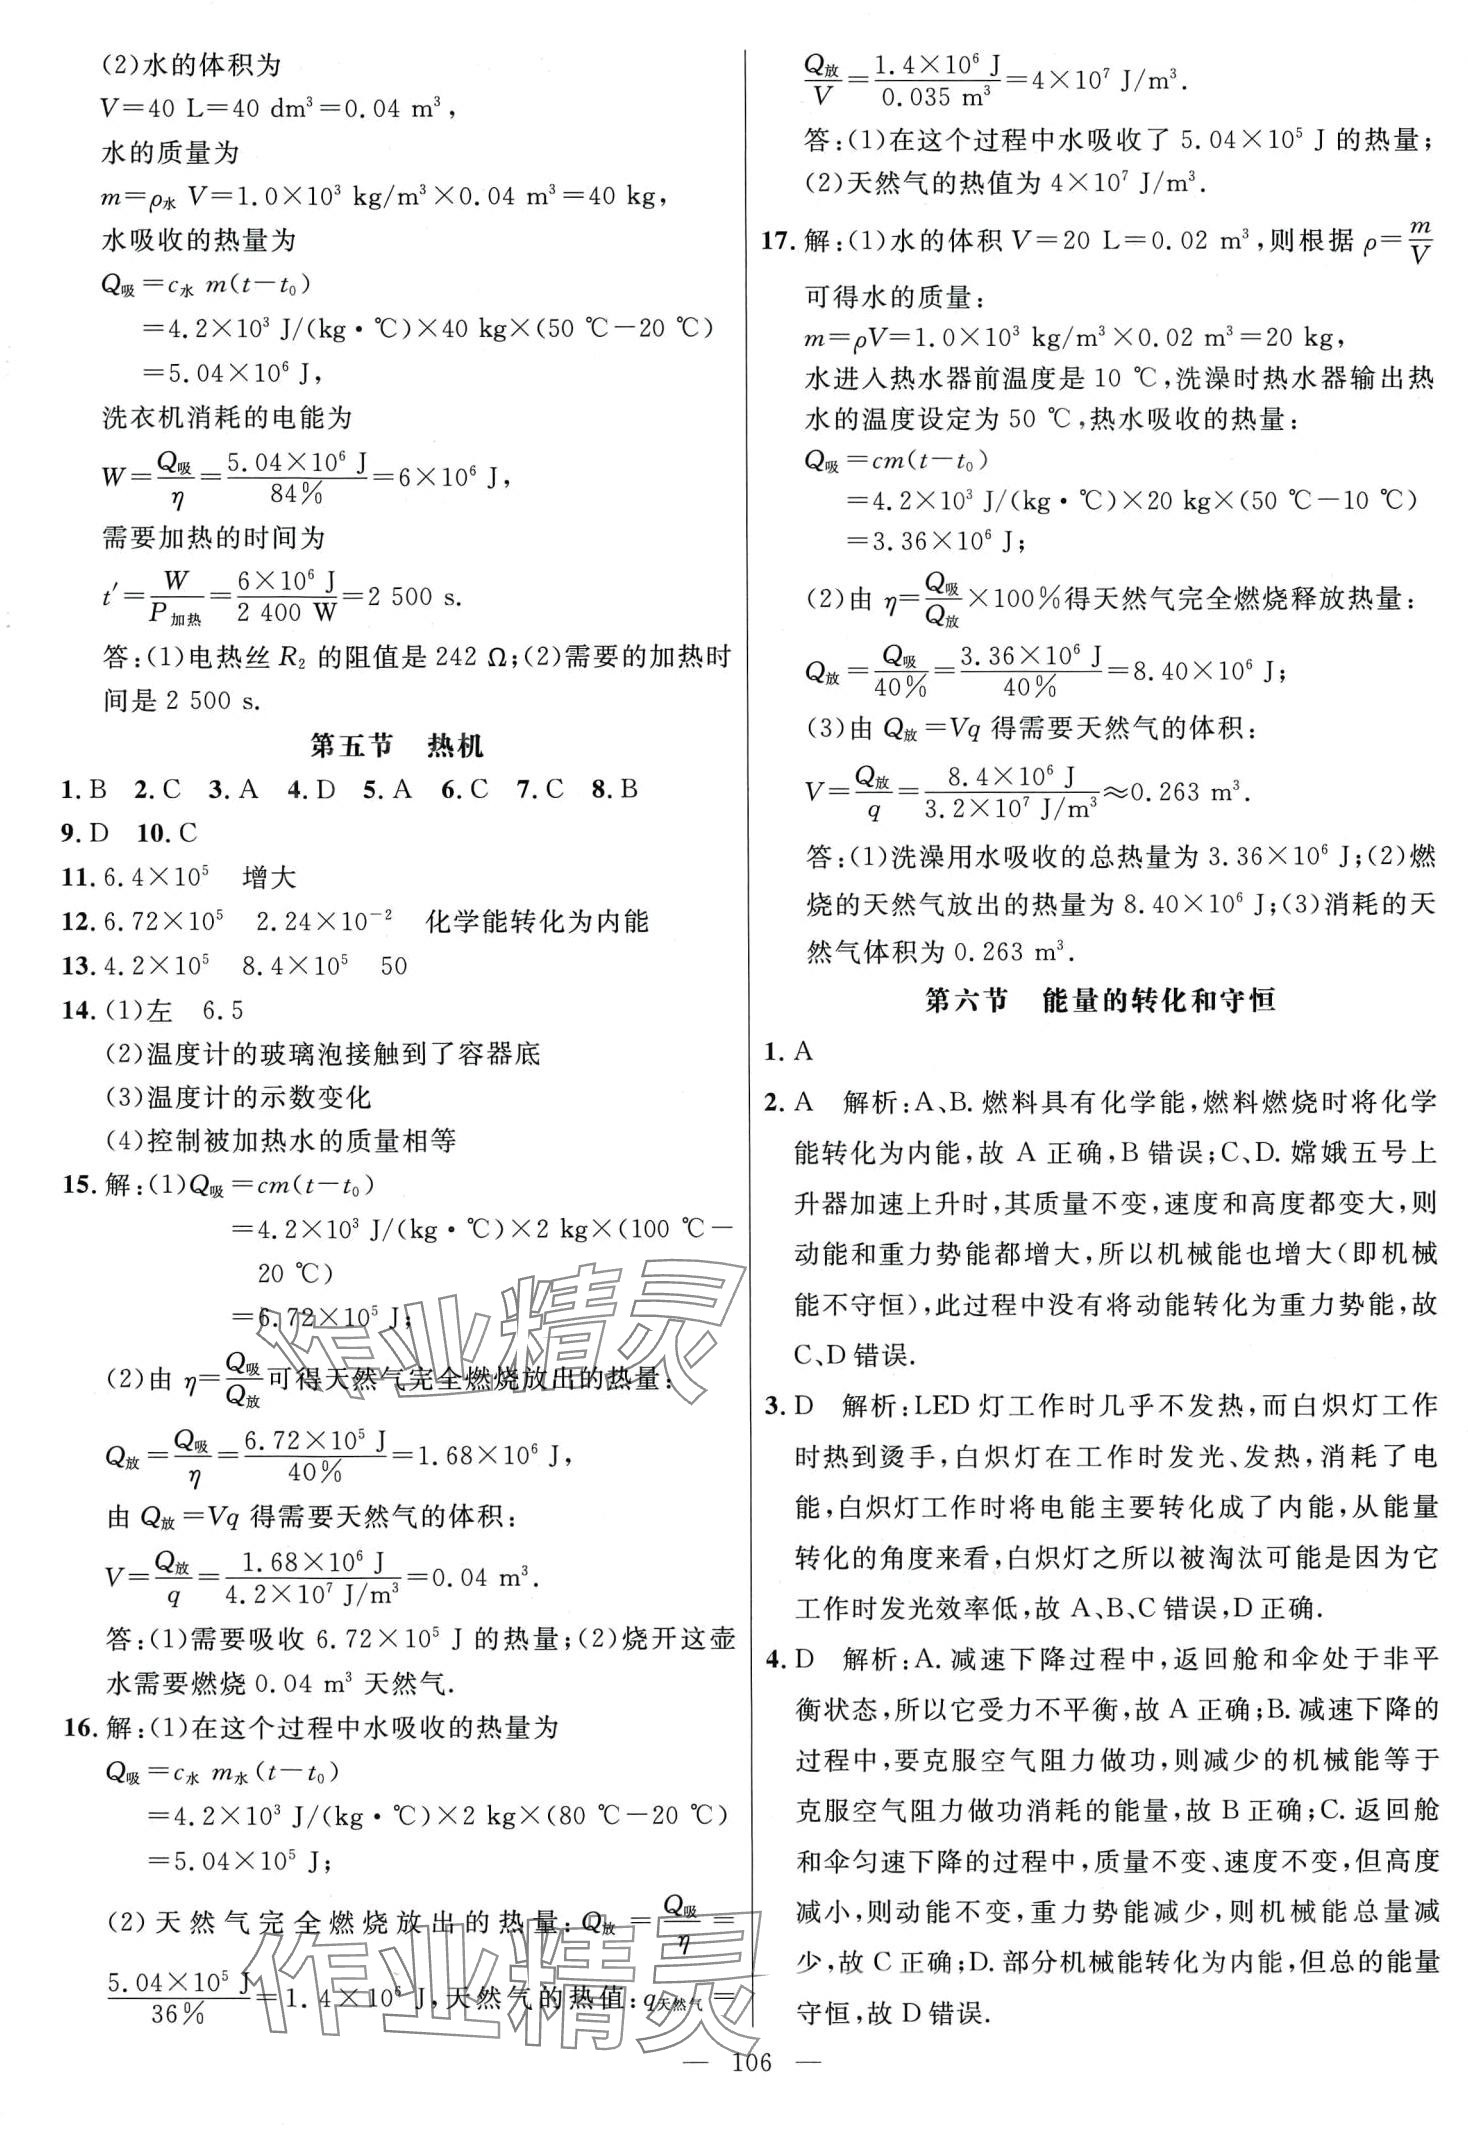 (2)水的体积为
V=40 L=40 dm³=0.04 m³,
水的质量为
m=ρ水 V=1.0×10³ kg/m³×0.04 m³=40 kg,
水吸收的热量为
Q吸=c水 m(t-t₀)
=4.2×10³ J/(kg·℃)×40 kg×(50 ℃-20 ℃)
=5.04×10⁶ J,
洗衣机消耗的电能为
W=Q吸/η=5.04×10⁶ J/84%=6×10⁶ J,
需要加热的时间为
t′=W/P加热=6×10⁶ J/2 400 W=2 500 s.
答:(1)电热丝 R₂ 的阻值是 242 Ω;(2)需要的加热时
间是 2 500 s.
第五节 热机
1. B 2. C 3. A 4. D 5. A 6. C 7. C 8. B
9. D 10. C
11. 6.4×10⁵ 增大
12. 6.72×10⁵ 2.24×10⁻² 化学能转化为内能
13. 4.2×10⁵ 8.4×10⁵ 50
14. (1)左 6.5
(2)温度计的玻璃泡接触到了容器底
(3)温度计的示数变化
(4)控制被加热水的质量相等
15. 解:(1)Q吸=cm(t-t₀)
=4.2×10³ J/(kg·℃)×2 kg×(100 ℃-
20 ℃)
=6.72×10⁵ J;
(2)由 η=Q吸/Q放可得天然气完全燃烧放出的热量:
Q放=Q吸/η=6.72×10⁵ J/40%=1.68×10⁶ J,
由 Q放=Vq 得需要天然气的体积:
V=Q放/q=1.68×10⁶ J/4.2×10⁷ J/m³=0.04 m³.
答:(1)需要吸收 6.72×10⁵ J 的热量;(2)烧开这壶
水需要燃烧 0.04 m³ 天然气.
16. 解:(1)在这个过程中水吸收的热量为
Q吸=c水 m水(t-t₀)
=4.2×10³ J/(kg·℃)×2 kg×(80 ℃-20 ℃)
=5.04×10⁵ J;
(2)天然气完全燃烧放出的热量:Q放=Q吸/η=
5.04×10⁵ J/36%=1.4×10⁶ J,天然气的热值:q天然气=
Q放/V=1.4×10⁶ J/0.035 m³=4×10⁷ J/m³.
答:(1)在这个过程中水吸收了 5.04×10⁵ J 的热量;
(2)天然气的热值为 4×10⁷ J/m³.
17. 解:(1)水的体积 V=20 L=0.02 m³,则根据 ρ=m/V
可得水的质量:
m=ρV=1.0×10³ kg/m³×0.02 m³=20 kg,
水进入热水器前温度是 10 ℃,洗澡时热水器输出热
水的温度设定为 50 ℃,热水吸收的热量:
Q吸=cm(t-t₀)
=4.2×10³ J/(kg·℃)×20 kg×(50 ℃-10 ℃)
=3.36×10⁶ J;
(2)由 η=Q吸/Q放×100%得天然气完全燃烧释放热量:
Q放=Q吸/40%=3.36×10⁶ J/40%=8.40×10⁶ J;
(3)由 Q放=Vq 得需要天然气的体积:
V=Q放/q=8.4×10⁶ J/3.2×10⁷ J/m³≈0.263 m³.
答:(1)洗澡用水吸收的总热量为 3.36×10⁶ J;(2)燃
烧的天然气放出的热量为 8.40×10⁶ J;(3)消耗的天
然气体积为 0.263 m³.
第六节 能量的转化和守恒
1. A
2. A 解析:A、B. 燃料具有化学能,燃料燃烧时将化学
能转化为内能,故 A 正确,B 错误;C、D. 嫦娥五号上
升器加速上升时,其质量不变,速度和高度都变大,则
动能和重力势能都增大,所以机械能也增大(即机械
能不守恒),此过程中没有将动能转化为重力势能,故
C、D 错误.
3. D 解析:LED 灯工作时几乎不发热,而白炽灯工作
时热到烫手,白炽灯在工作时发光、发热,消耗了电
能,白炽灯工作时将电能主要转化成了内能,从能量
转化的角度来看,白炽灯之所以被淘汰可能是因为它
工作时发光效率低,故 A、B、C 错误,D 正确.
4. D 解析:A. 减速下降过程中,返回舱和伞处于非平
衡状态,所以它受力不平衡,故 A 正确;B. 减速下降的
过程中,要克服空气阻力做功,则减少的机械能等于
克服空气阻力做功消耗的能量,故 B 正确;C. 返回舱
和伞匀速下降的过程中,质量不变、速度不变,但高度
减小,则动能不变,重力势能减少,则机械能总量减
少,故 C 正确;D. 部分机械能转化为内能,但总的能量
守恒,故 D 错误.
— 106 —
作业精灵
作业精灵